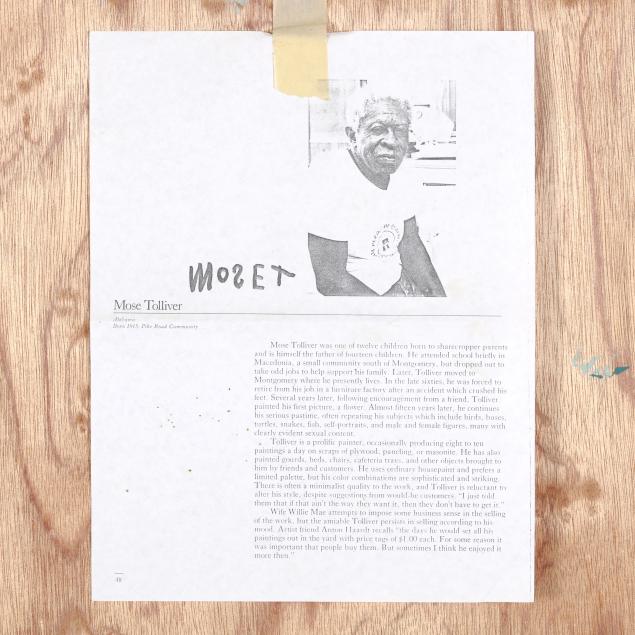 MOSET
Mose Tolliver
Alabama
Born 1915, Pike Road Community
Mose Tolliver was one of twelve children born to sharecropper parents
and is himself the father of fourteen children. He attended school briefly in
Macedonia, a small community south of Montgomery, but dropped out to
take odd jobs to help support his family. Later, Tolliver moved to
Montgomery where he presently lives. In the late sixties, he was forced to
retire from his job in a furniture factory after an accident which crushed his
feet. Several years later, following encouragement from a friend, Tolliver
painted his first picture, a flower. Almost fifteen years later, he continues
his serious pastime, often repeating his subjects which include birds, buses,
turtles, snakes, fish, self-portraits, and male and female figures, many with
clearly evident sexual content.
Tolliver is a prolific painter, occasionally producing eight to ten
paintings a day on scraps of plywood, paneling, or masonite. He has also
painted gourds, beds, chairs, cafeteria trays, and other objects brought to
him by friends and customers. He uses ordinary housepaint and prefers a
limited palette, but his color combinations are sophisticated and striking.
There is often a minimalist quality to the work, and Tolliver is reluctant to
alter his style, despite suggestions from would-be customers. "I just told
them that if that ain't the way they want it, then they don't have to get it."
Wife Willie Mae attempts to impose some business sense in the selling
of the work, but the amiable Tolliver persists in selling according to his
mood. Artist friend Anton Haardt recalls "the days he would set all his
paintings out in the yard with price tags of $1.00 each. For some reason it
was important that people buy them. But sometimes I think he enjoyed it
more then."
48